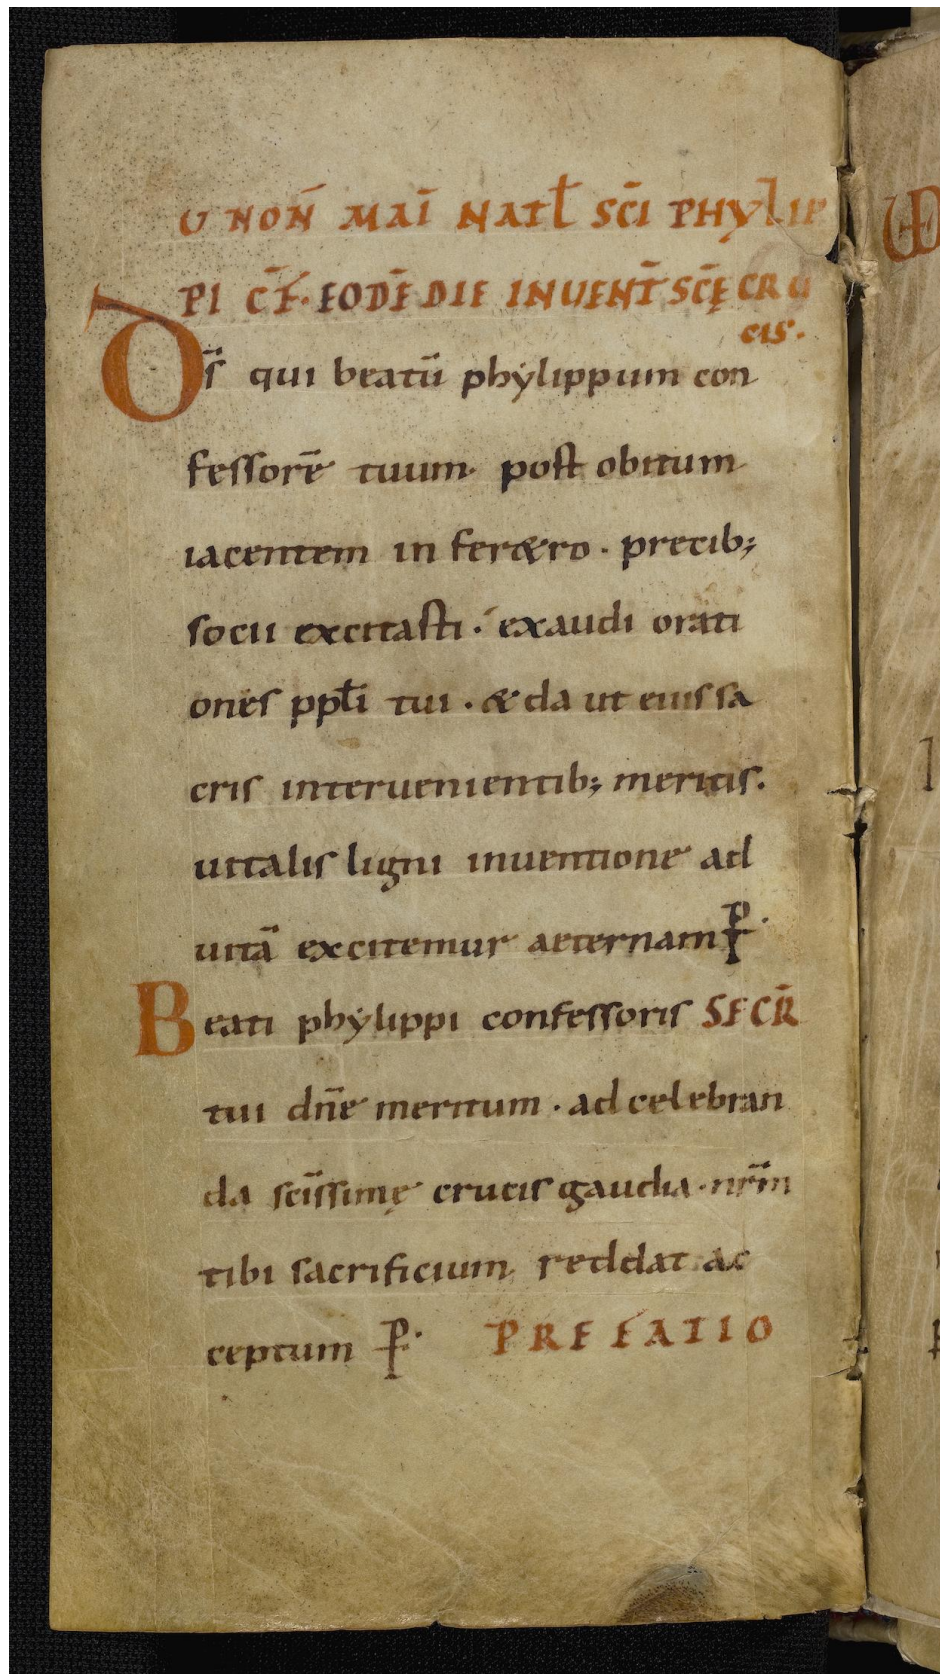 U NOÑ MAĪ NATL̄ SC̄I PHYLIP
PI C̄F. EODĒ DIE INUENT̄ SC̄Ę CRU
CIS.
D̄s qui beatū phẏlippum con
fessorē tuum post obitum
iacentem in feretro · precib;
socii excitasti · exaudi orati
ones ppl̄i tui · & da ut eius sa
cris interuenientib; meritis.
uitalis ligni inuentione ad
uitā excitemur aeternam P̄
Beati phẏlippi confessoris SECR̄
tui dn̄e meritum · ad celebran
da sc̄issimę crucis gaudia · nr̄m
tibi sacrificium reddat ac
ceptum P̄ · PREFATIO